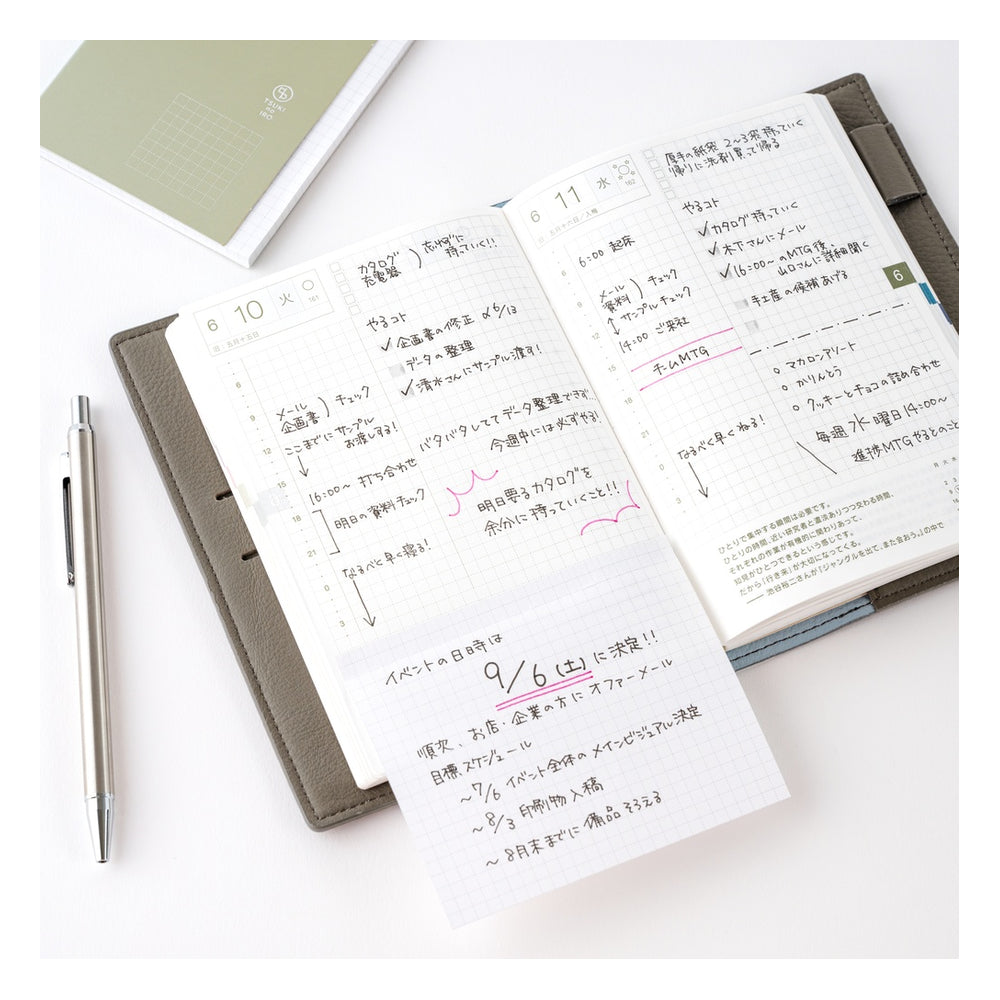 TSUKI
no
IRO
6 10 火
161
五月十五日
カタログ
充電器
忘れずに
持っていく!!
やるコト
企画書の修正 〆6/13
データの整理
清水さんにサンプル渡す!
6
9
12
15
18
21
0
3
メール
企画書
チェック
ここまでにサンプル
お渡しする!
16:00〜 打ち合わせ
明日の資料チェック
なるべく早く寝る!
バタバタしててデータ整理できず…
今週中には必ずやる!
明日要るカタログを
余分に持っていくこと!!
イベントの日時は
9/6(土)に決定!!
順次、お店・企業の方にオファーメール
目標スケジュール
〜7/6 イベント全体のメインビジュアル決定
〜8/3 印刷物入稿
〜8月末までに備品そろえる
6 11 水
162
五月十六日/入梅
厚手の紙袋 2〜3袋持っていく
帰りに洗剤買って帰る
やるコト
カタログ持っていく
木下さんにメール
16:00〜のMTG後、
山口さんに詳細聞く
手土産の候補あげる
6
9
12
15
18
21
0
3
6:00 起床
メール
資料
チェック
サンプルチェック
14:00 ご来社
チームMTG
なるべく早くねる!
マカロンアソート
かりんとう
クッキーとチョコの詰め合わせ
毎週水曜日14:00〜
進捗MTGやるとのこと
6
ひとりで集中する瞬間は必要です。
ひとりの時間、近い研究者と濃淡ありつつ交わる時間、
それぞれの作業が有機的に関わりあって、
知見がひとつできるという感じです。
だから「行き来」が大切になってくる。
── 池谷裕二さんが『ジャングルを出て、また会おう。』の中で